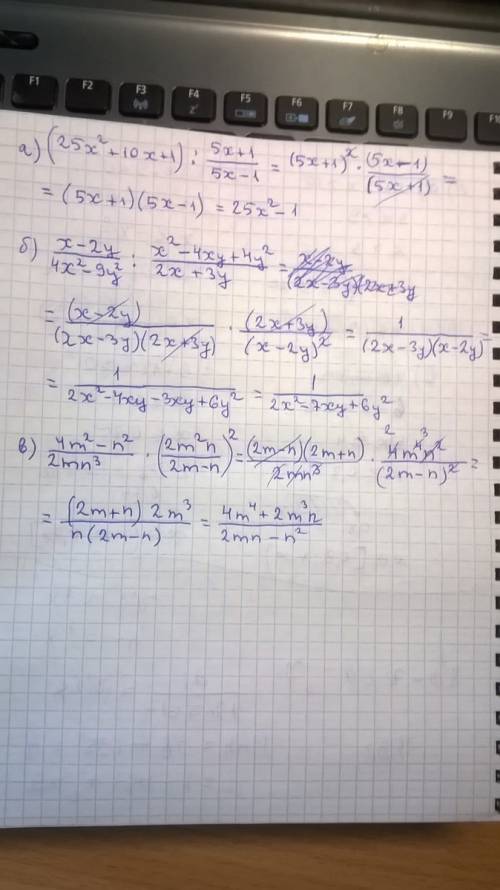 F1 F2 F3 F4 F5 F6 F7 F8 F9 F10
а) (25x² + 10x + 1) : (5x+1)/(5x-1) = (5x+1)² · (5x-1)/(5x+1) =
= (5x+1)(5x-1) = 25x² - 1
б) (x-2y)/(4x²-9y²) : (x²-4xy+4y²)/(2x+3y) = (x-2y)/((2x-3y)(2x+3y
= (x-2y)/((2x-3y)(2x+3y)) · (2x+3y)/(x-2y)² = 1/((2x-3y)(x-2y)) =
= 1/(2x²-4xy-3xy+6y²) = 1/(2x²-7xy+6y²)
в) (4m²-n²)/(2mn³) · (2m²n/(2m-n))² = (2m-n)(2m+n)/(2mn³) · 4m⁴n²/(2m-n)² =
= (2m+n) 2m³/(n(2m-n)) = (4m⁴+2m³n)/(2mn-n²)